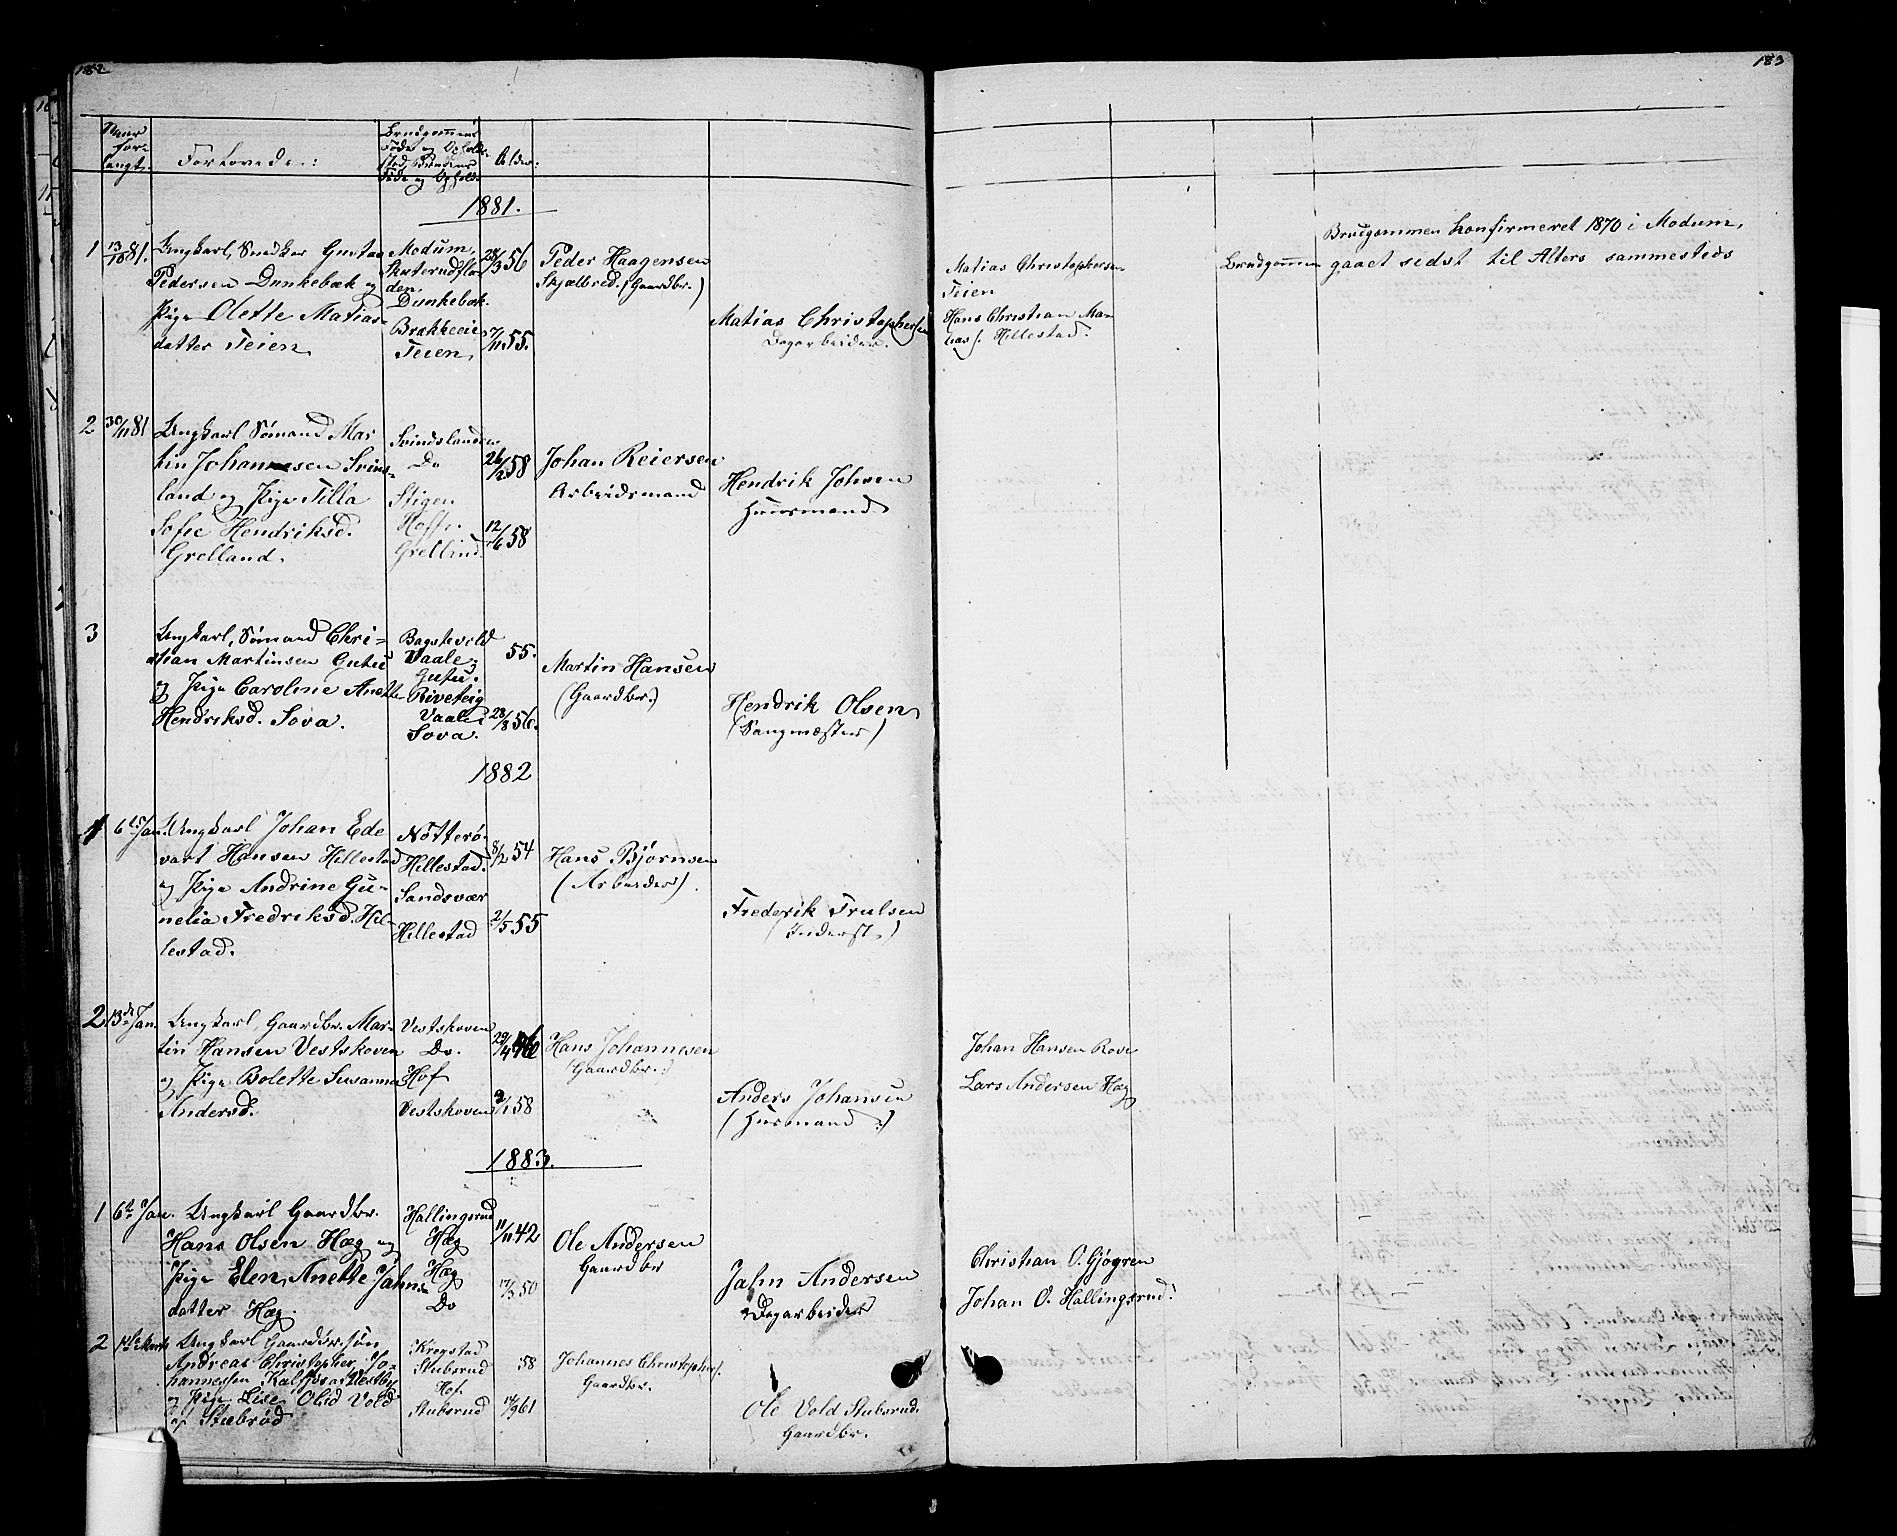 182
183
Naar
for-
langt.
Forlovede:
Brudgommens
Føde og Opholds-
sted, Brudens
Føde og Ophold.
Alder:
1881.
1
13/10 81.
Ungkarl, Snedker Gustav
Pedersen Dunkebæk og
Pige Olette Matias-
datter Teien
Modum,
Skuterudflo-
den.
Dunkebæk.
Brækkeeie
Teien,
28/3 56
7/11 55.
Peder Haagensen
Skjælbred. (Gaardbr.)
Matias Christophersen
Dagarbeider.
Matias Christophersen
Teien
Hans Christian Ma-
tias s. Hillestad.
Brudgommen
Brudgommen konfirmeret 1870 i Modum,
gaaet sidst til Alters sammesteds
2
30/11 81
Ungkarl Sømand Mar-
tin Johannesen Svins-
land og Pige Tilla
Sofie Hendriksd.
Grelland.
Svindslanden
Do
Stigen
Hoff.
Grelland
26/2 58
12/6 58
Johan Reiersen
Arbeidsmand
Hendrik Johsen
Huusmand
3
Ungkarl, Sømand Chri-
stian Martinsen Gutu
og Pige Caroline Anette
Hendriksd. Sova.
Bagstevold
Vaale
Gutu.
Riveteig
Vaale
Sova.
55.
28/8 56.
Martin Hansen
(Gaardbr.)
Hendrik Olsen
(Sangmæster)
1882
1
6te Jan.
Ungkarl Johan Ede-
vart Hansen Hillestad
og Pige Andrine Gu-
nelia Fredriksd. Hil-
lestad.
Nøtterø.
Hillestad.
Sandsvær
Hillestad
8/2 54
2/5 55
Hans Bjørnsen
(Arbeider).
Frederik Trulsen
(Inderst.)
2
13de Jan.
Ungkarl, Gaardbr. Mar-
tin Hansen Vestskoven
og Pige Bolette Susanna
Andersd.
Vestskoven
Do.
Hof
Vestskoven
2/1 58
Hans Johannesen
(Gaardbr.)
Anders Johansen
(Husmand.)
Johan Hansen Rove
Lars Andersen Hæg
1883.
1
6te Jan.
Ungkarl Gaardbr.
Hans Olsen Hæg og
Pige Elen Anette Jahns-
datter Hæg.
Hallingsrud
Hæg
Hæg
Do
11/11 42
17/3 50
Ole Andersen
Gaardbr
Jahn Andersen
Dagarbeider
Christian O. Gjøgren
Johan O. Hallingsrud.
2
Marts
Ungkarl Gaardbrsøn
Andreas Christopher Jo-
hannessen
og Pige Lise Olsd Vold
af Stubrød
Krogstad
Stubsrud
Hof.
Stubsrud
58
17/9 61
Johannes Christophers.
Gaardbr.
Ole Vold Stubsrud.
Gaardbr.